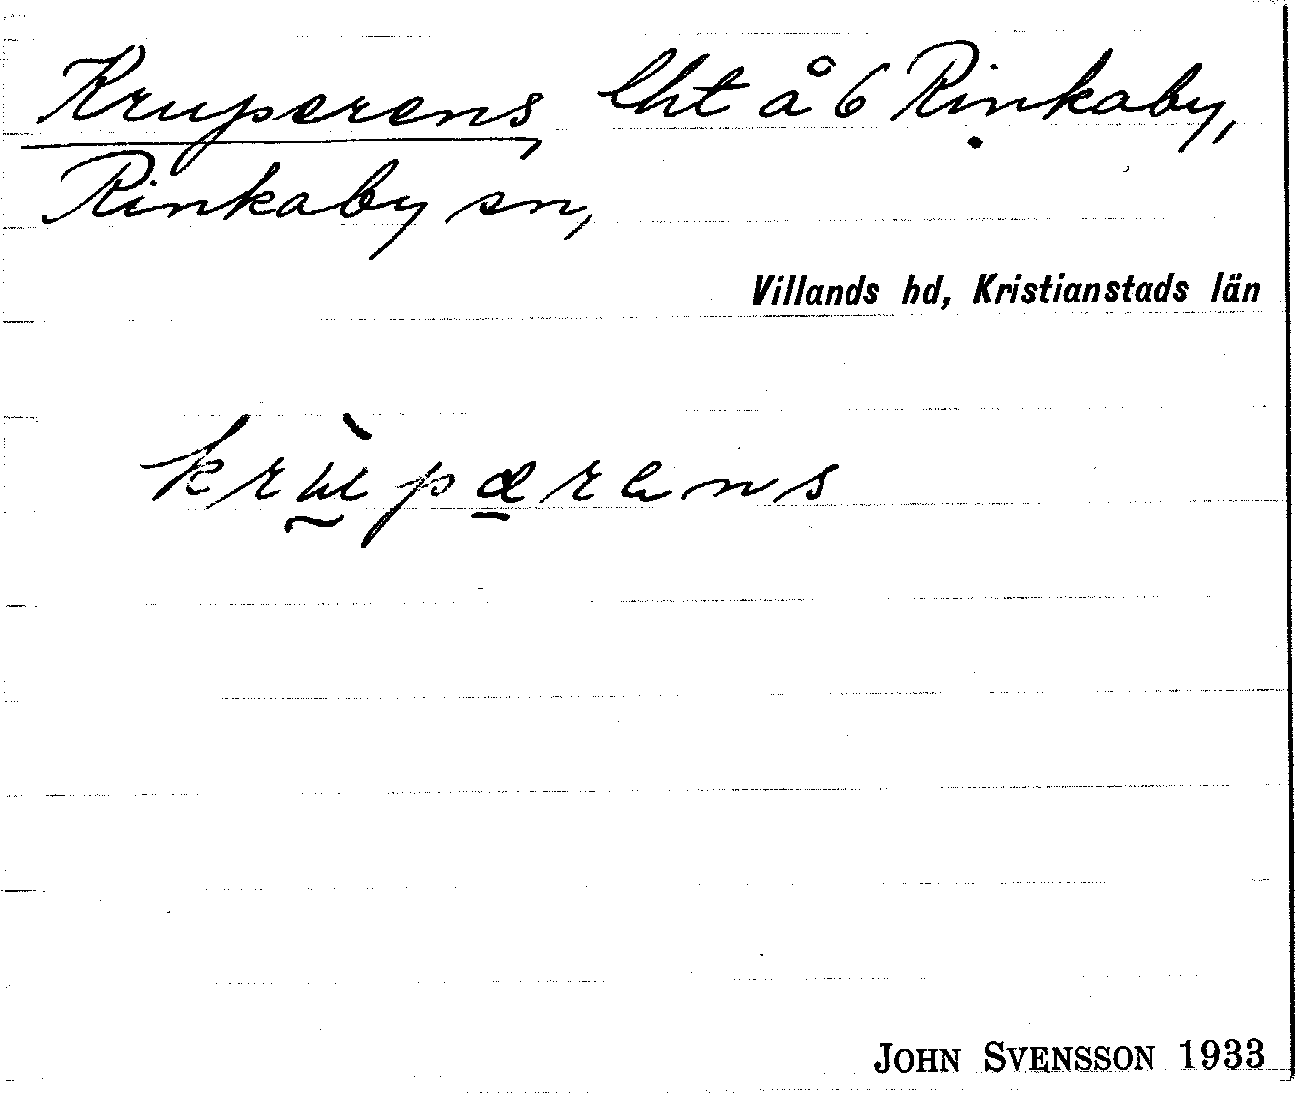 Kruperens, lht å 6 Rinkaby,
Rinkaby sn,
Villands hd, Kristianstads län
krɯ̀pærɐns
JOHN SVENSSON 1933